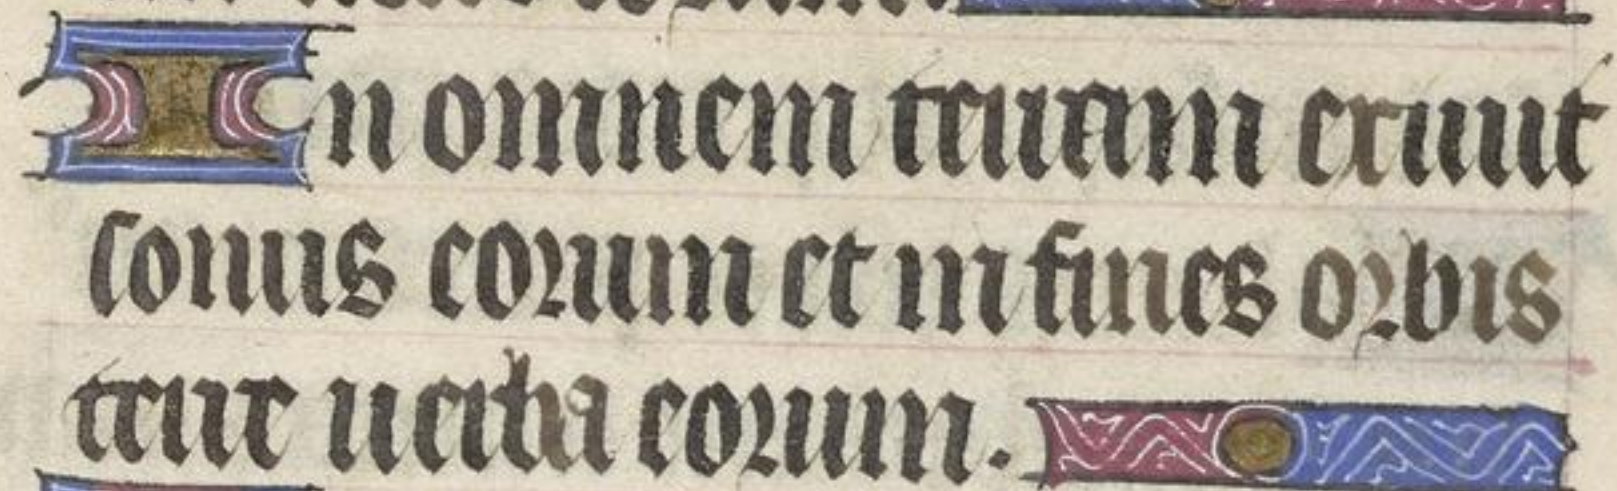 In omnem terram exiuit
sonus eorum et in fines orbis
terre uerba eorum.